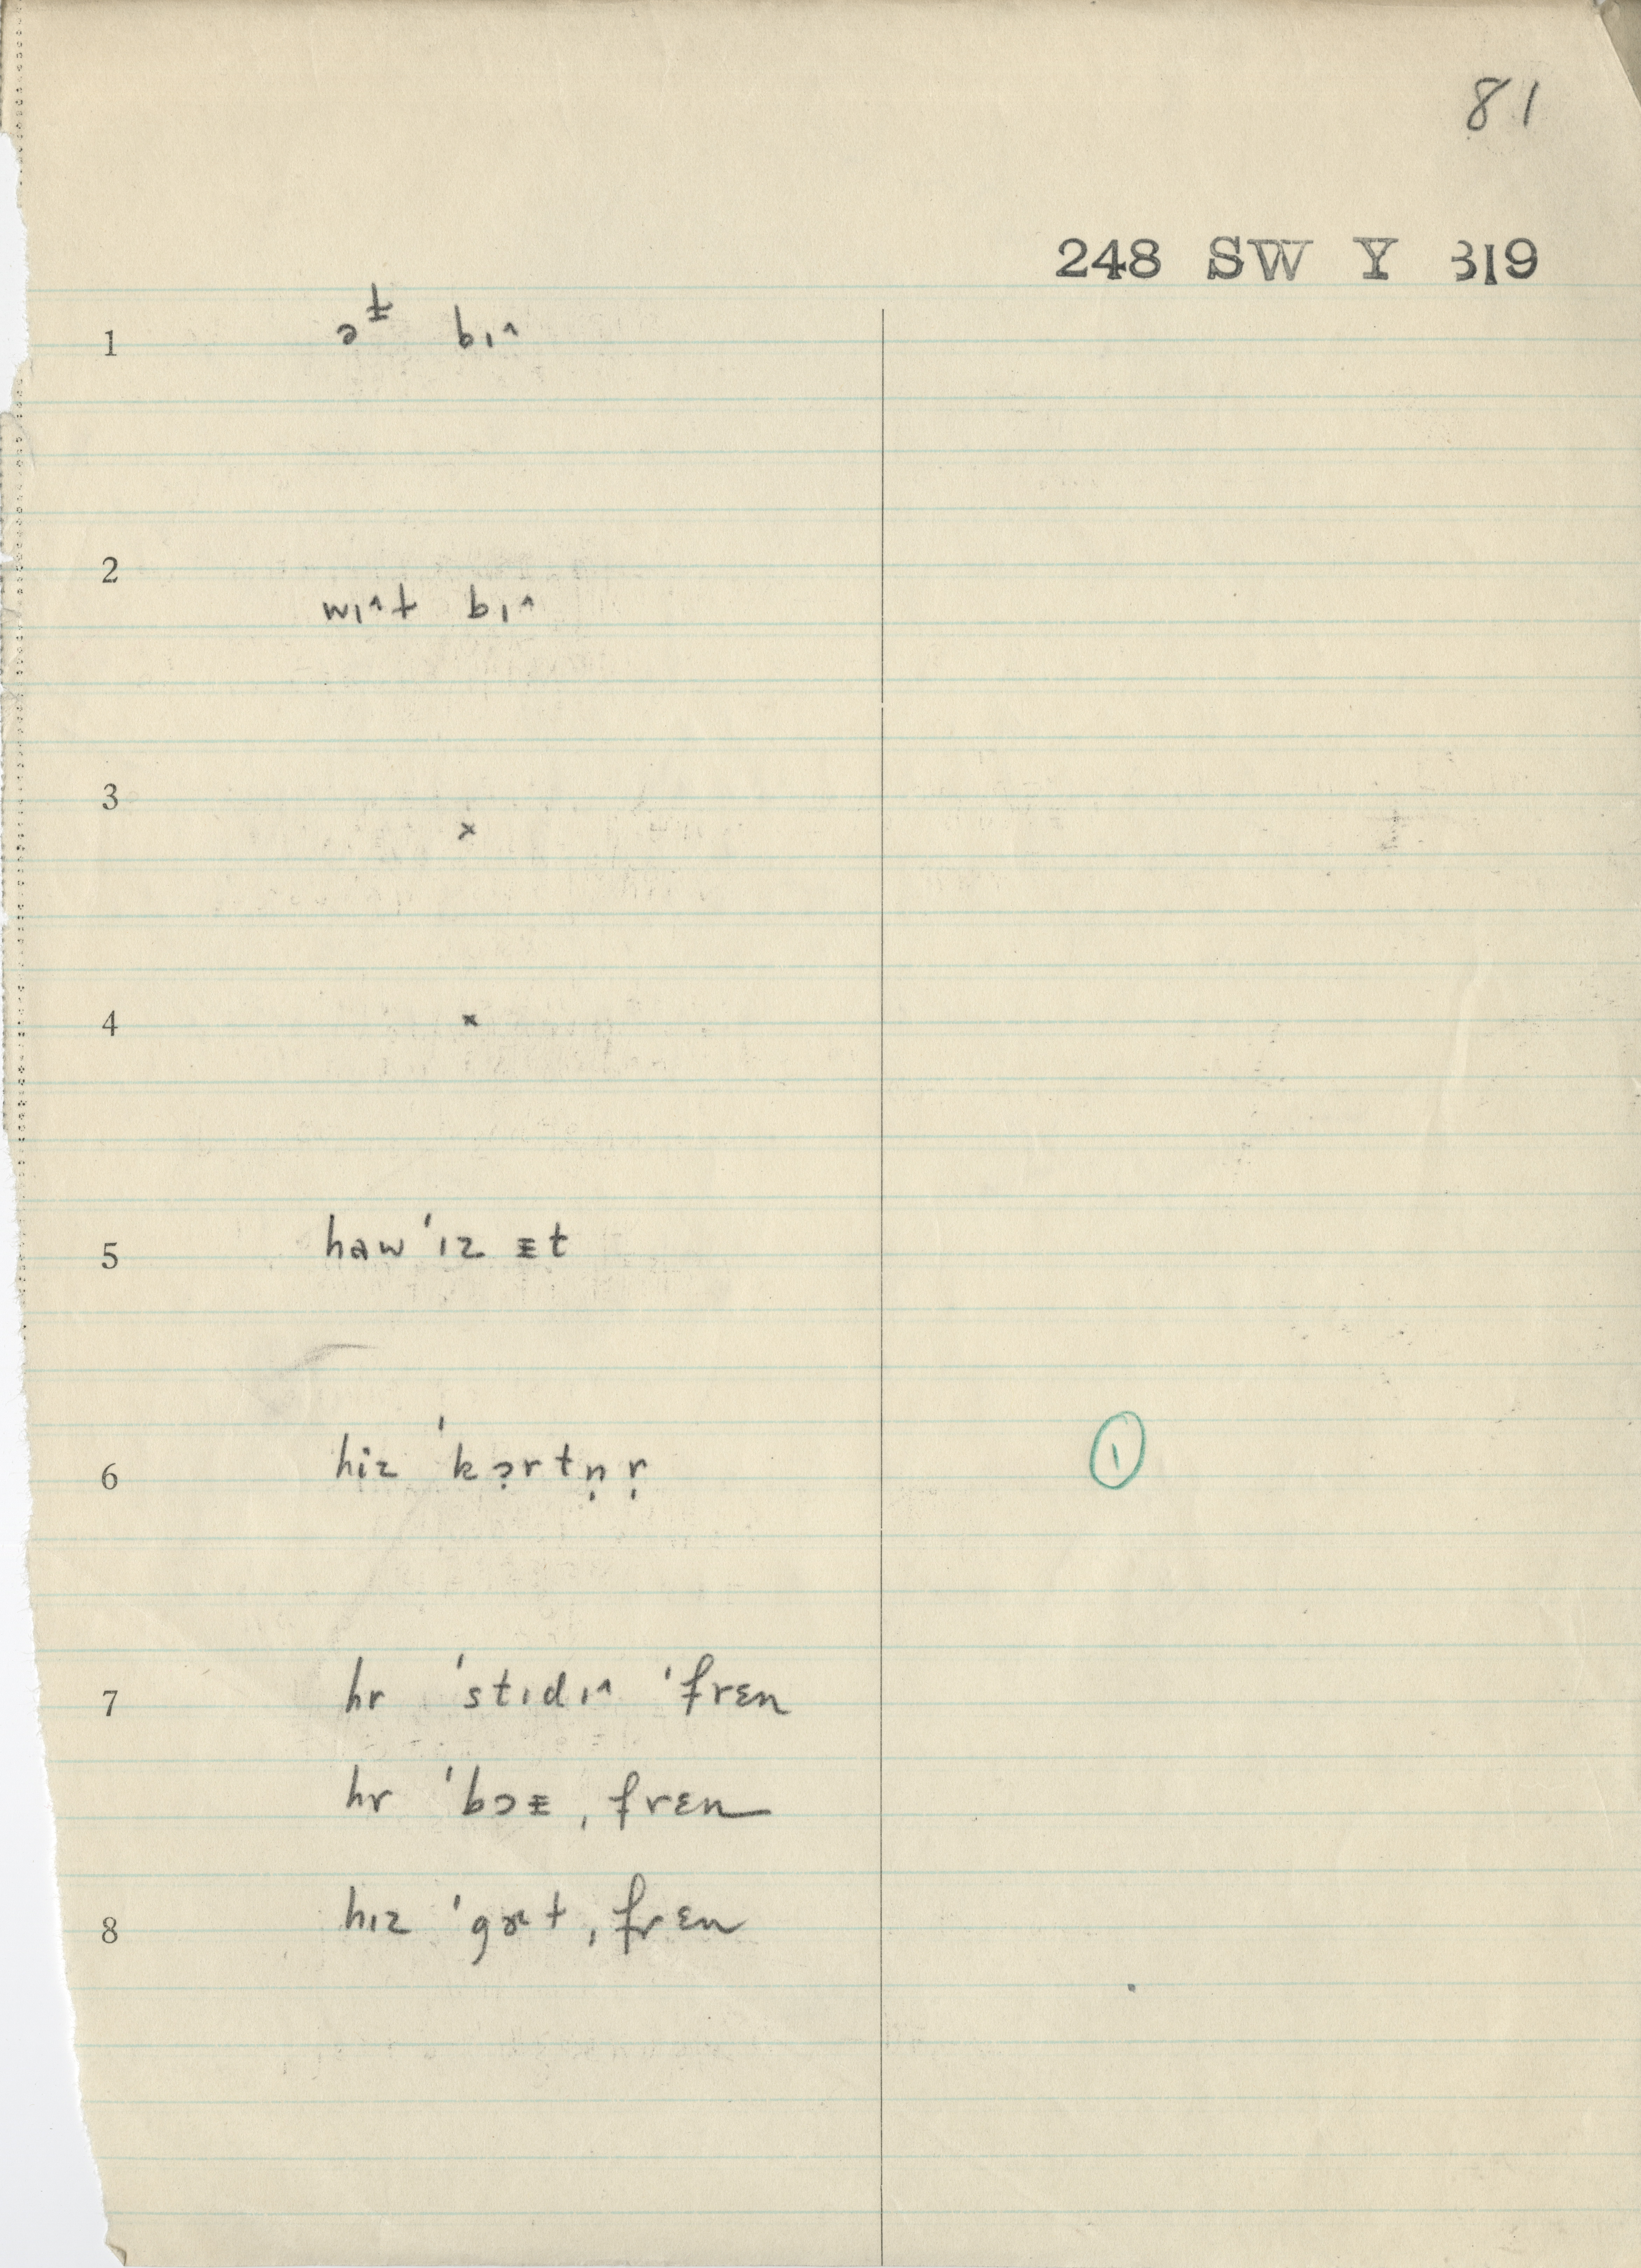 81
248 SW Y 319
1 ə ᵻ bɪ^
2 wɪ^t bɪ^
3 ×
4 ×
5 haw 'ɪz ᵻt
6 hiz 'kɔ̣rtṇṛ ①
7 hr 'stɪdɪ^ 'frɛn
hr 'bɔᵻ ˌfrɛn
8 hɪz 'gɤ^t ˌfrɛn